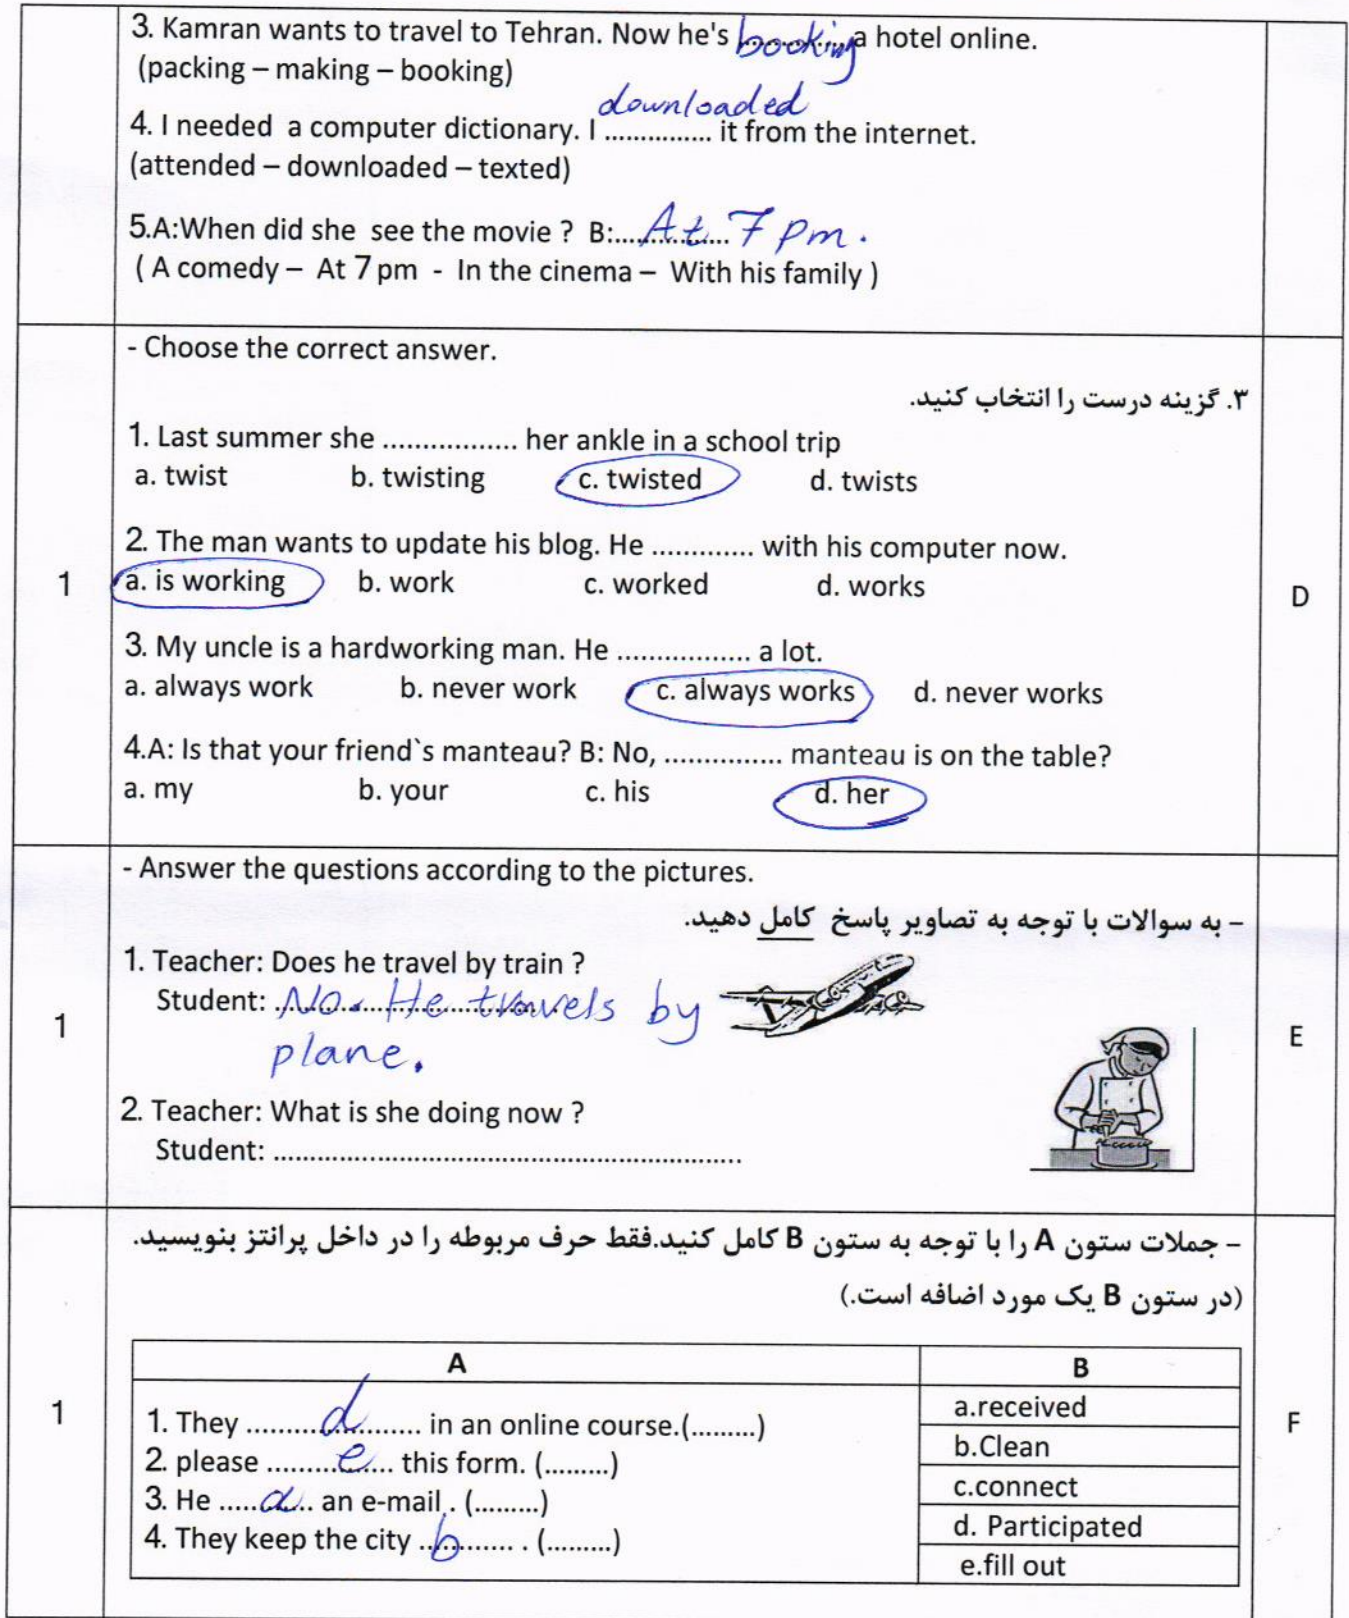 3. Kamran wants to travel to Tehran. Now he's booking a hotel online.
(packing – making – booking)
downloaded
4. I needed a computer dictionary. I ............... it from the internet.
(attended – downloaded – texted)
5.A:When did she see the movie ? B:................ At 7 pm.
( A comedy – At 7 pm - In the cinema – With his family )
- Choose the correct answer.
۳. گزینه درست را انتخاب کنید.
1. Last summer she ................. her ankle in a school trip
a. twist b. twisting c. twisted d. twists
2. The man wants to update his blog. He ............. with his computer now.
1 a. is working b. work c. worked d. works D
3. My uncle is a hardworking man. He ................. a lot.
a. always work b. never work c. always works d. never works
4.A: Is that your friend`s manteau? B: No, ............... manteau is on the table?
a. my b. your c. his d. her
- Answer the questions according to the pictures.
- به سوالات با توجه به تصاویر پاسخ کامل دهید.
1. Teacher: Does he travel by train ?
Student: No. He travels by
1 E
plane.
2. Teacher: What is she doing now ?
Student: ............................................................
- جملات ستون A را با توجه به ستون B کامل کنید.فقط حرف مربوطه را در داخل پرانتز بنویسید.
(در ستون B یک مورد اضافه است.)
A B
1 F
1. They ..........d.......... in an online course.(.........) a.received
2. please .........e...... this form. (.........) b.Clean
3. He .....a.... an e-mail . (.........) c.connect
4. They keep the city ...b........ . (.........) d. Participated
e.fill out